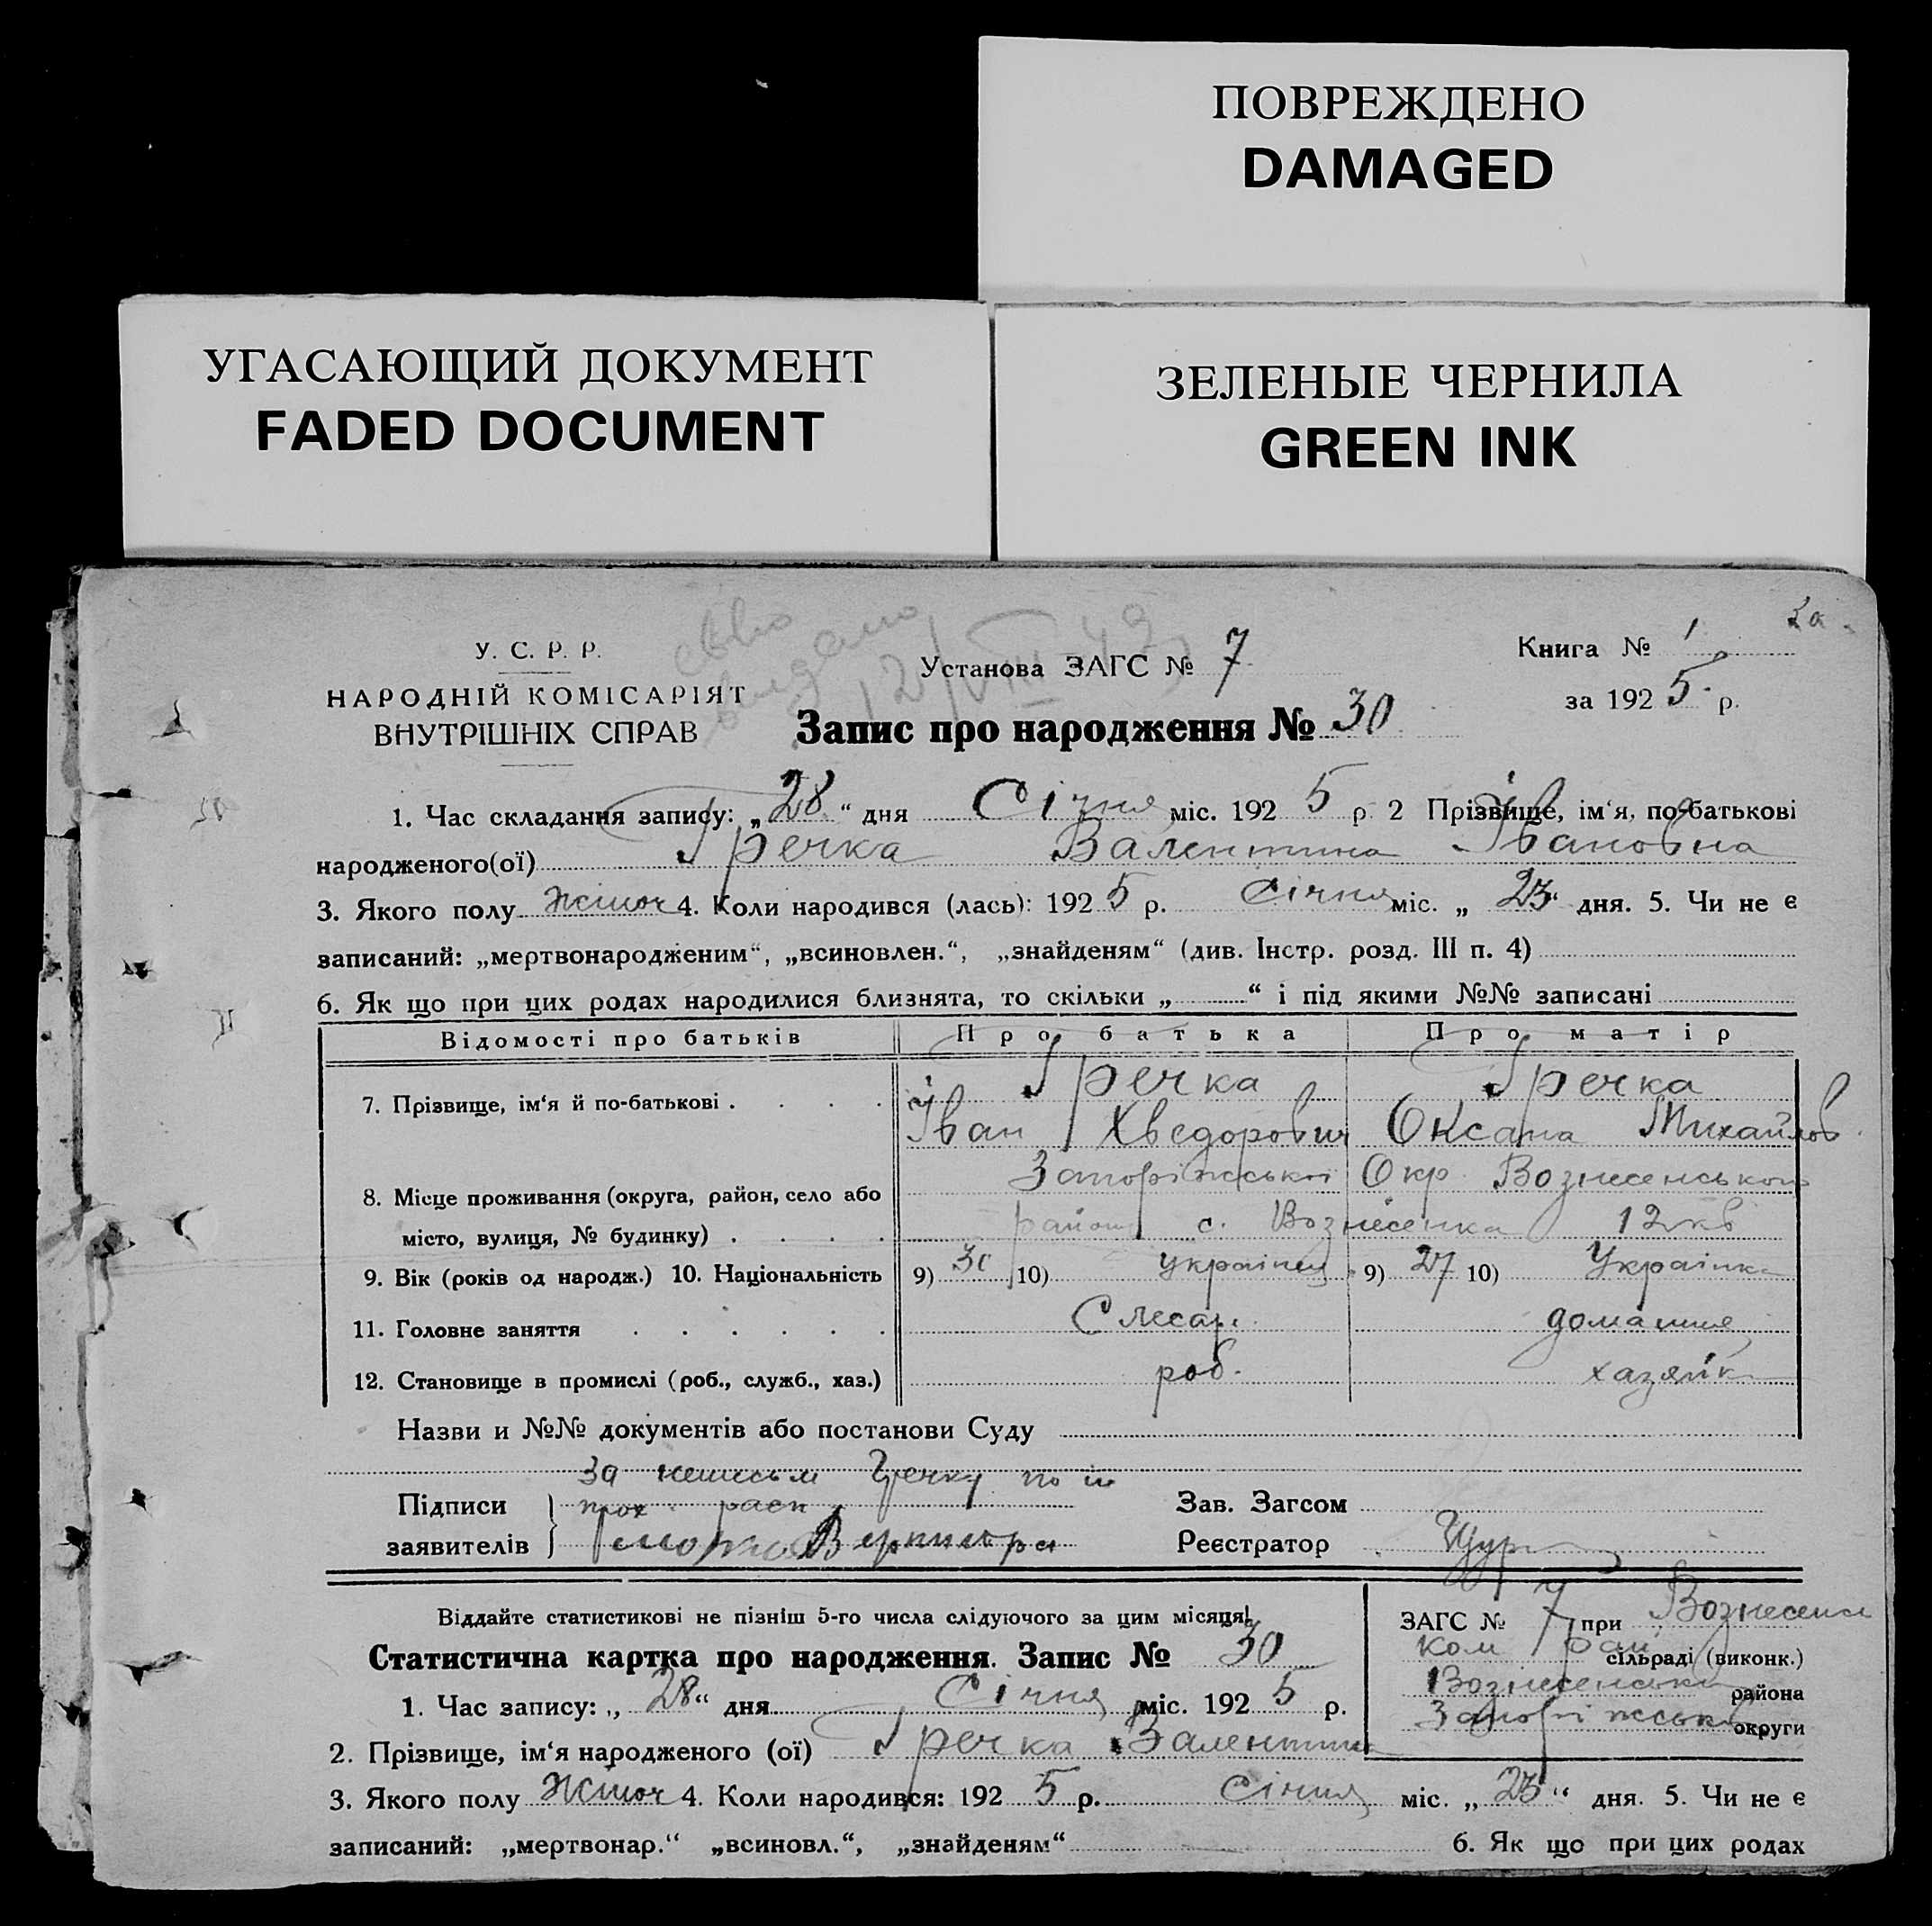 ПОВРЕЖДЕНО
DAMAGED
УГАСАЮЩИЙ ДОКУМЕНТ
FADED DOCUMENT
ЗЕЛЕНЫЕ ЧЕРНИЛА
GREEN INK
2а
У. С. Р. Р.
НАРОДНІЙ КОМІСАРІЯТ
ВНУТРІШНІХ СПРАВ
Установа ЗАГС № 7
Книга № 1
за 1925 р.
Запис про народження № 30
1. Час складання запису: „28“ дня Січня міс. 1925 р. 2 Прізвище, ім‘я, по-батькові
народженого(ої) Гречка Валентина Івановна
3. Якого полу жіноч 4. Коли народився (лась): 1925 р. Січня міс. „23“ дня. 5. Чи не є
записаний: „мертвонародженим“, „всиновлен.“, „знайденям“ (див. Інстр. розд. III п. 4)
6. Як що при цих родах народилися близнята, то скільки „ “ і під якими №№ записані
Відомості про батьків Про батька Про матір
7. Прізвище, ім‘я й по-батькові Гречка Гречка
Іван Хведорович Оксана Михайлов
8. Місце проживання (округа, район, село або Запоріжської Окр. Вознесенського
місто, вулиця, № будинку) району с. Вознесенка 12 кв
9. Вік (років од народж.) 10. Національність 9) 30 10) Українец 9) 27 10) Українка
11. Головне заняття Слесарь домашня
12. Становище в промислі (роб., служб., хаз.) роб. хазяйка
Назви и №№ документів або постанови Суду
За неписьм Гречку по їі
Підписи прох расп Зав. Загсом
заявителів Реєстратор
Віддайте статистикові не пізніш 5-го числа слідуючого за цим місяця!
Статистична картка про народження. Запис № 30
ЗАГС № 7 при Вознесенс
ком рай сільраді (виконк.)
Вознесенськ района
Запоріжськ округи
1. Час запису: „28“ дня Січня міс. 1925 р.
2. Прізвище, ім‘я народженого (ої) Гречка Валентина
3. Якого полу Жіноч 4. Коли народився: 1925 р. Січня міс. „23“ дня. 5. Чи не є
записаний: „мертвонар.“ „всиновл.“, „знайденям“ 6. Як що при цих родах